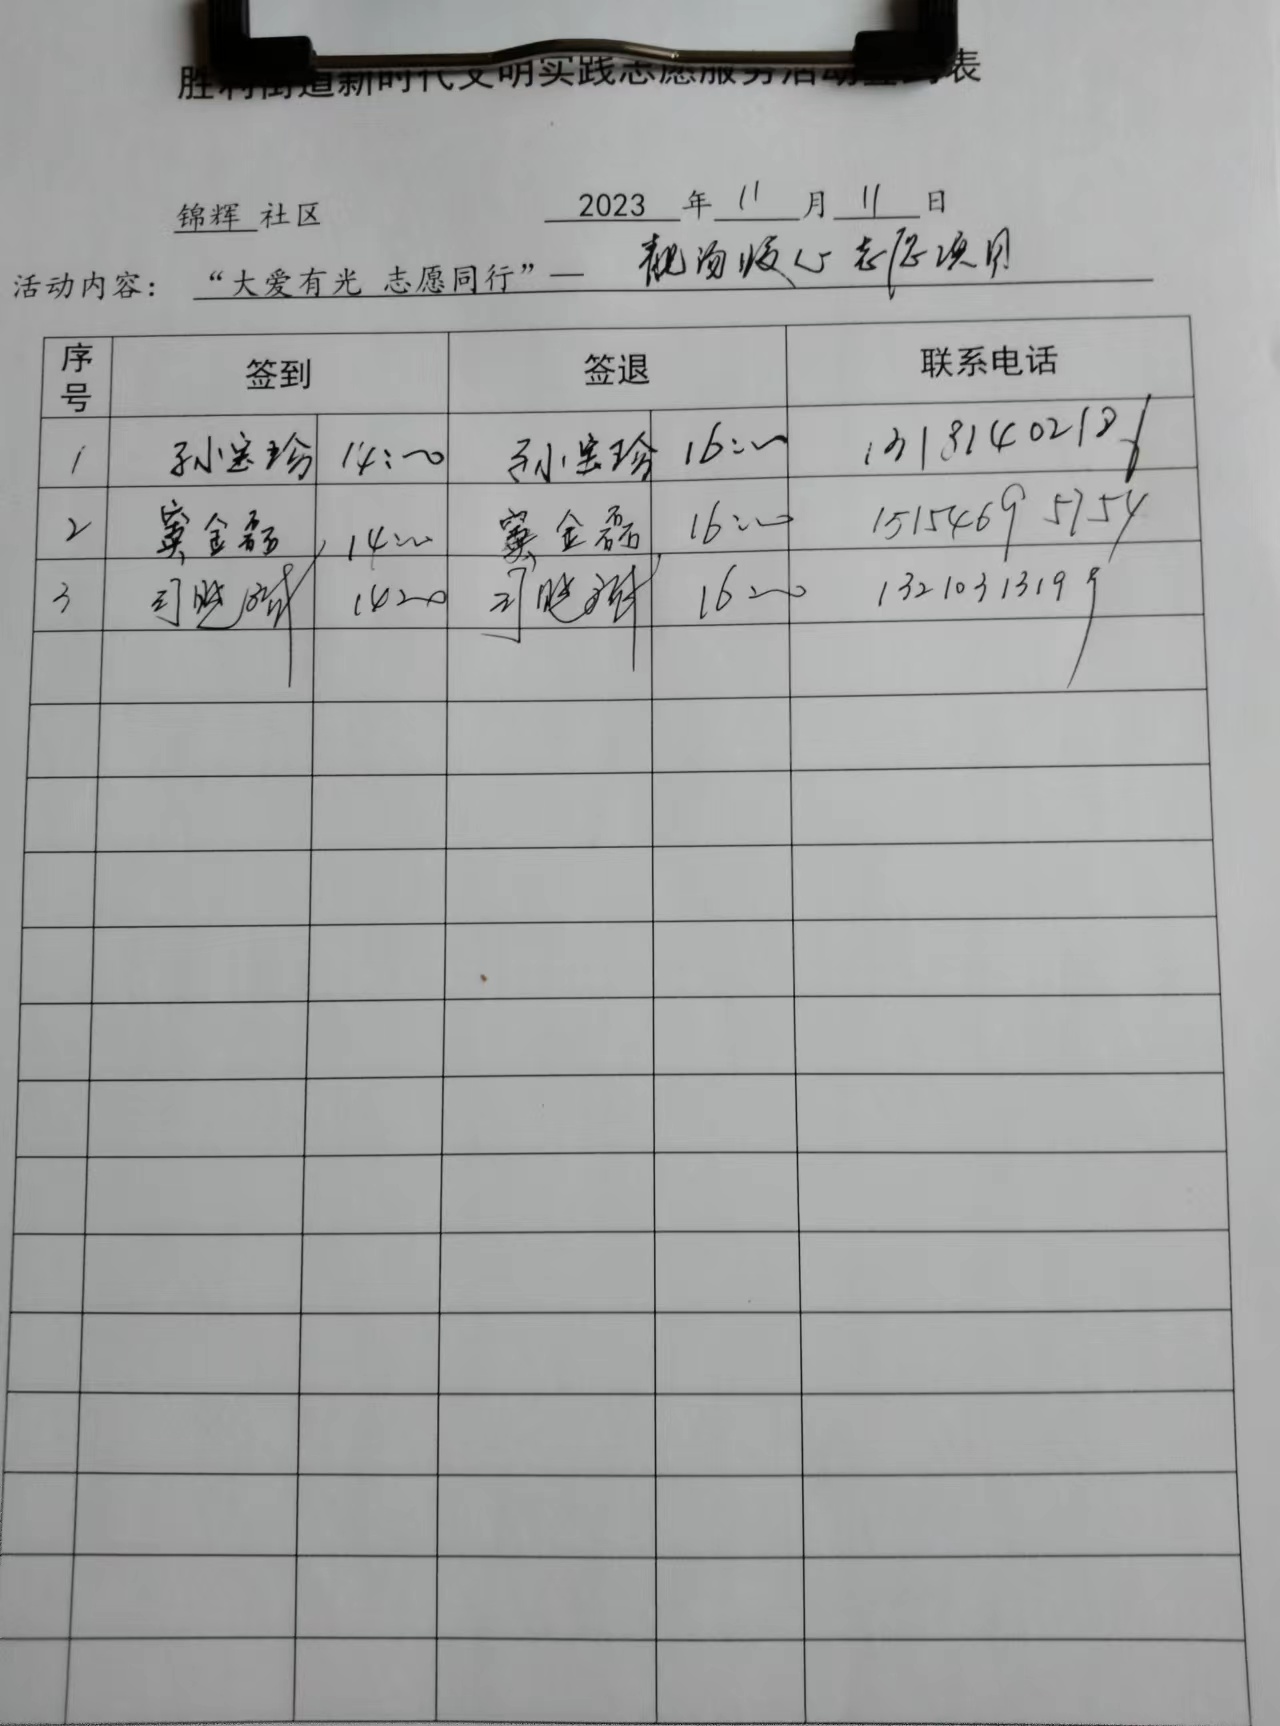 胜利街道新时代文明实践志愿服务活动签到表
锦辉 社区 2023 年 11 月 11 日
活动内容： “大爱有光 志愿同行”— 靓汤暖心志愿项目
序号 签到 签退 联系电话
1 孙宝珍 14:00 孙宝珍 16:00 1318140218
2 窦金磊 14:00 窦金磊 16:00 15154695754
3 司胜 1400 司胜 1600 13210313199